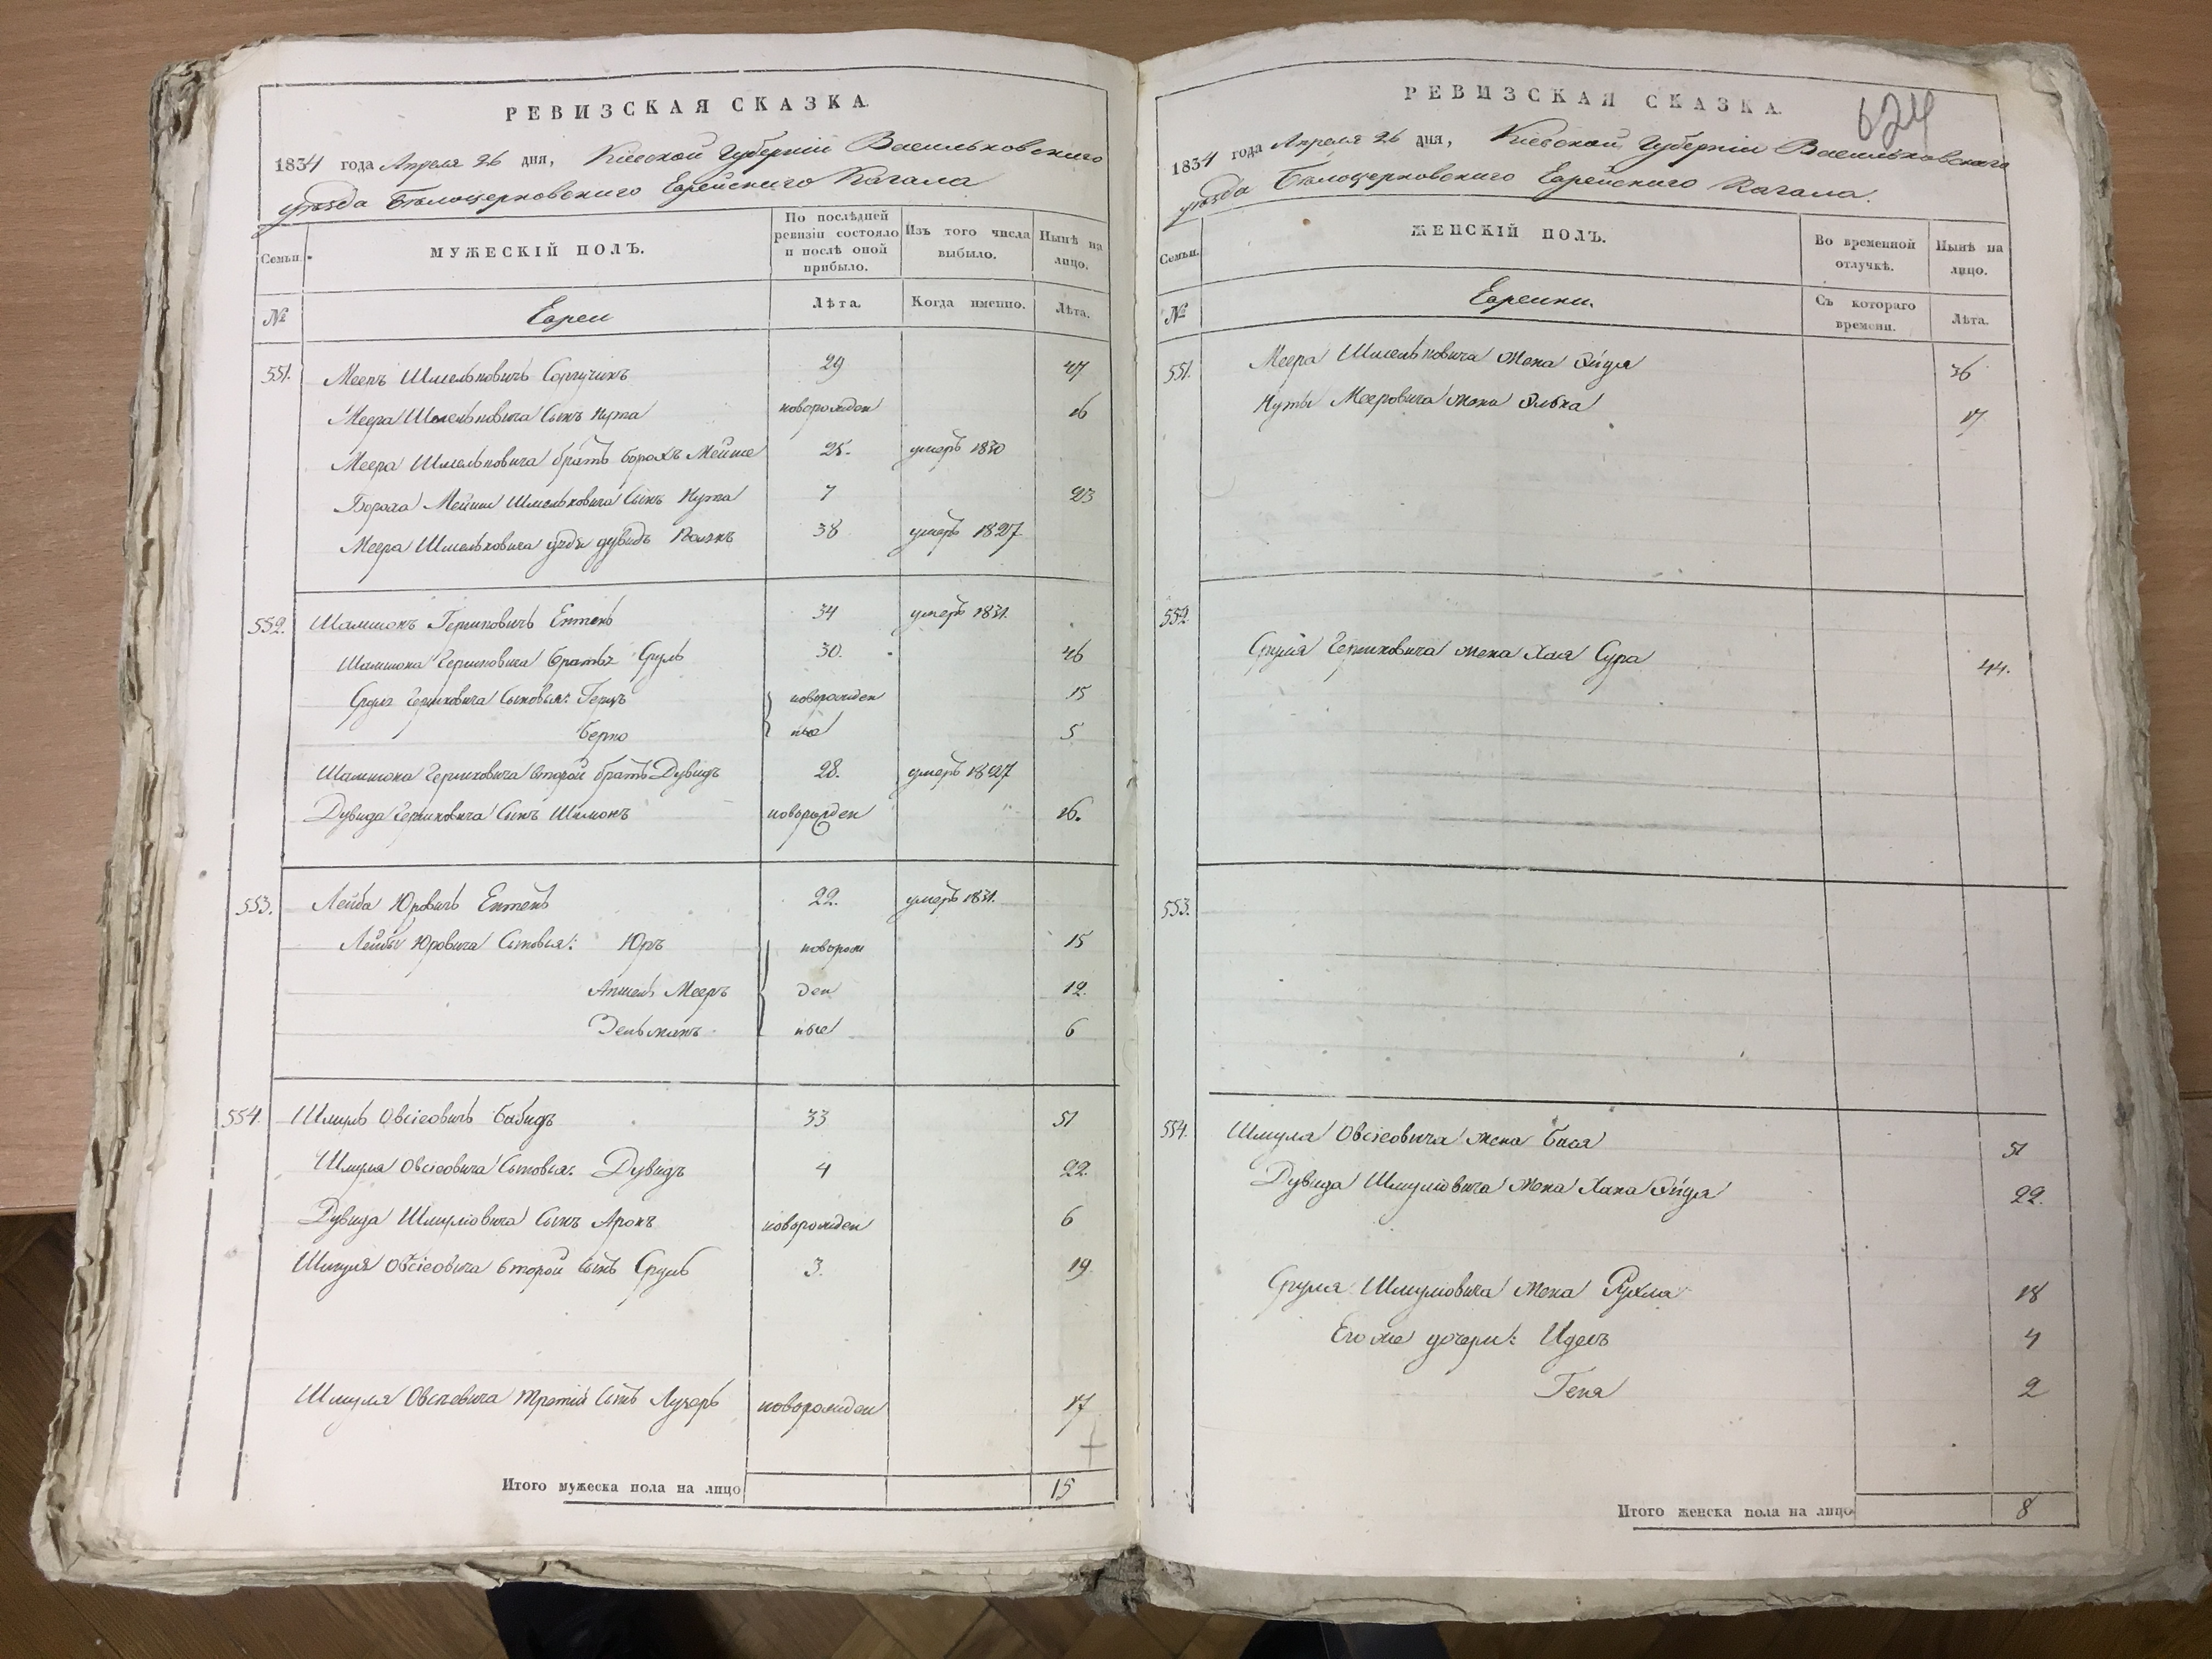 РЕВИЗСКАЯ СКАЗКА.
1834 года Апреля 26 дня, Кіевской Губерніи Васильковскаго
уѣзда Бѣлоцерковскаго Еврейскаго Кагала
Семьи.
МУЖЕСКІЙ ПОЛЪ.
По послѣдней ревизіи состояло и послѣ оной прибыло.
Изъ того числа выбыло.
Нынѣ на лицо.
№
Евреи
Лѣта.
Когда именно.
Лѣта.
551. Мееръ Шмельковичъ 29 47
Меера Шмельковича Сынъ Нута новорожден 16
Меера Шмельковича братъ Борахъ Мейше 25. умеръ 1830
Бораха Мейши Шмельковича Сынъ Нута 7 23
Меера Шмельковича дядя дувидъ 38 умеръ 1827
552. Шамшонъ Гершковичъ 34 умеръ 1831.
Шамшона Гершковича братья Сруль 30. 46
Сруля Гершковича Сыновья: Герцъ новорожден 15
Берко ные 5
Шамшона Гершковича второй братъ Дувидъ 28. умеръ 1827
Дувида Гершковича Сынъ Шимонъ новорожден 16.
553. Лейба Юровичъ 22. умеръ 1831.
Лейбы Юровича Сыновья: Юръ новорож 15
Аншель Мееръ ден 12.
Зельманъ ные 6
554. Шмуль Овсіовичъ 33 51
Шмуля Овсіовича Сыновья: Дувидъ 4 22.
Дувида Шмуліовича Сынъ Аронъ новорожден 6
Шмуля Овсіовича второй Сынъ Сруль 3. 19
Шмуля Овсіевича третій Сынъ Лузоръ новорожден 17
Итого мужеска пола на лицо 15
624
РЕВИЗСКАЯ СКАЗКА.
1834 года Апреля 26 дня, Кіевской Губерніи Васильковскаго
уѣзда Бѣлоцерковскаго Еврейскаго Кагала.
Семьи.
ЖЕНСКІЙ ПОЛЪ.
Во временной отлучкѣ.
Нынѣ на лицо.
№
Еврейки.
Съ котораго времени.
Лѣта.
551. Меера Шмельковича жена Эйдля 36
Нуты Мееровича жена Элька 17
552.
Сруля Гершковича жена Хая Сура 44.
553.
554. Шмуля Овсіовича жена Бася 51
Дувида Шмуліовича жена Хана Эйдля 22.
Сруля Шмуліовича жена Рухля 18
Его же дочери: Идесъ 4
Геня 2
Итого женска пола на лицо 8